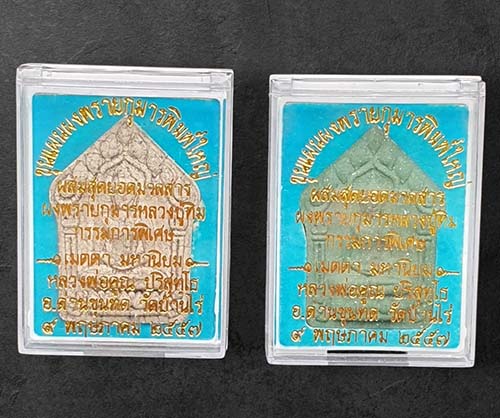 ขุนแผนผงพรายกุมารพิมพ์ใหญ่
ผสมสุดยอดมวลสาร
ผงพรายกุมารหลวงปู่ทิม
กรรมการพิเศษ
เมตตา มหานิยม
หลวงพ่อคูณ ปริสุทฺโธ
อ.ด่านขุนทด วัดบ้านไร่
๙ พฤษภาคม ๒๕๕๗
ขุนแผนผงพรายกุมารพิมพ์ใหญ่
ผสมสุดยอดมวลสาร
ผงพรายกุมารหลวงปู่ทิม
กรรมการพิเศษ
เมตตา มหานิยม
หลวงพ่อคูณ ปริสุทฺโธ
อ.ด่านขุนทด วัดบ้านไร่
๙ พฤษภาคม ๒๕๕๗